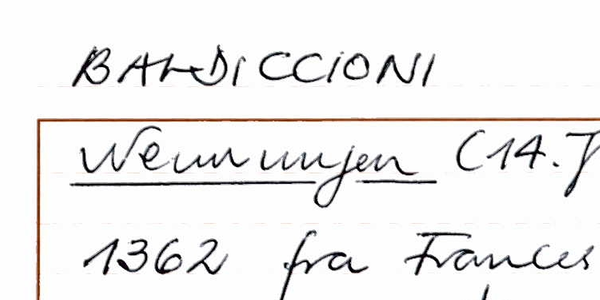 BALDICCIONI
Nennungen (14.J
1362 fra Frances